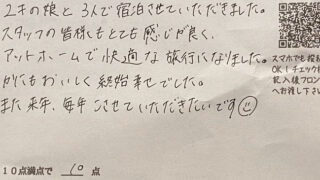 2才の娘と3人で宿泊させていただきました。
スタッフの皆様もとても感じが良く、
アットホームで快適な旅行になりました。
かにもおいしく終始幸せでした。
また来年、毎年こさせていただきたいです☺
スマホでも
OK!チェック
記入後フロン
へお渡し下さい
10点満点で 10 点